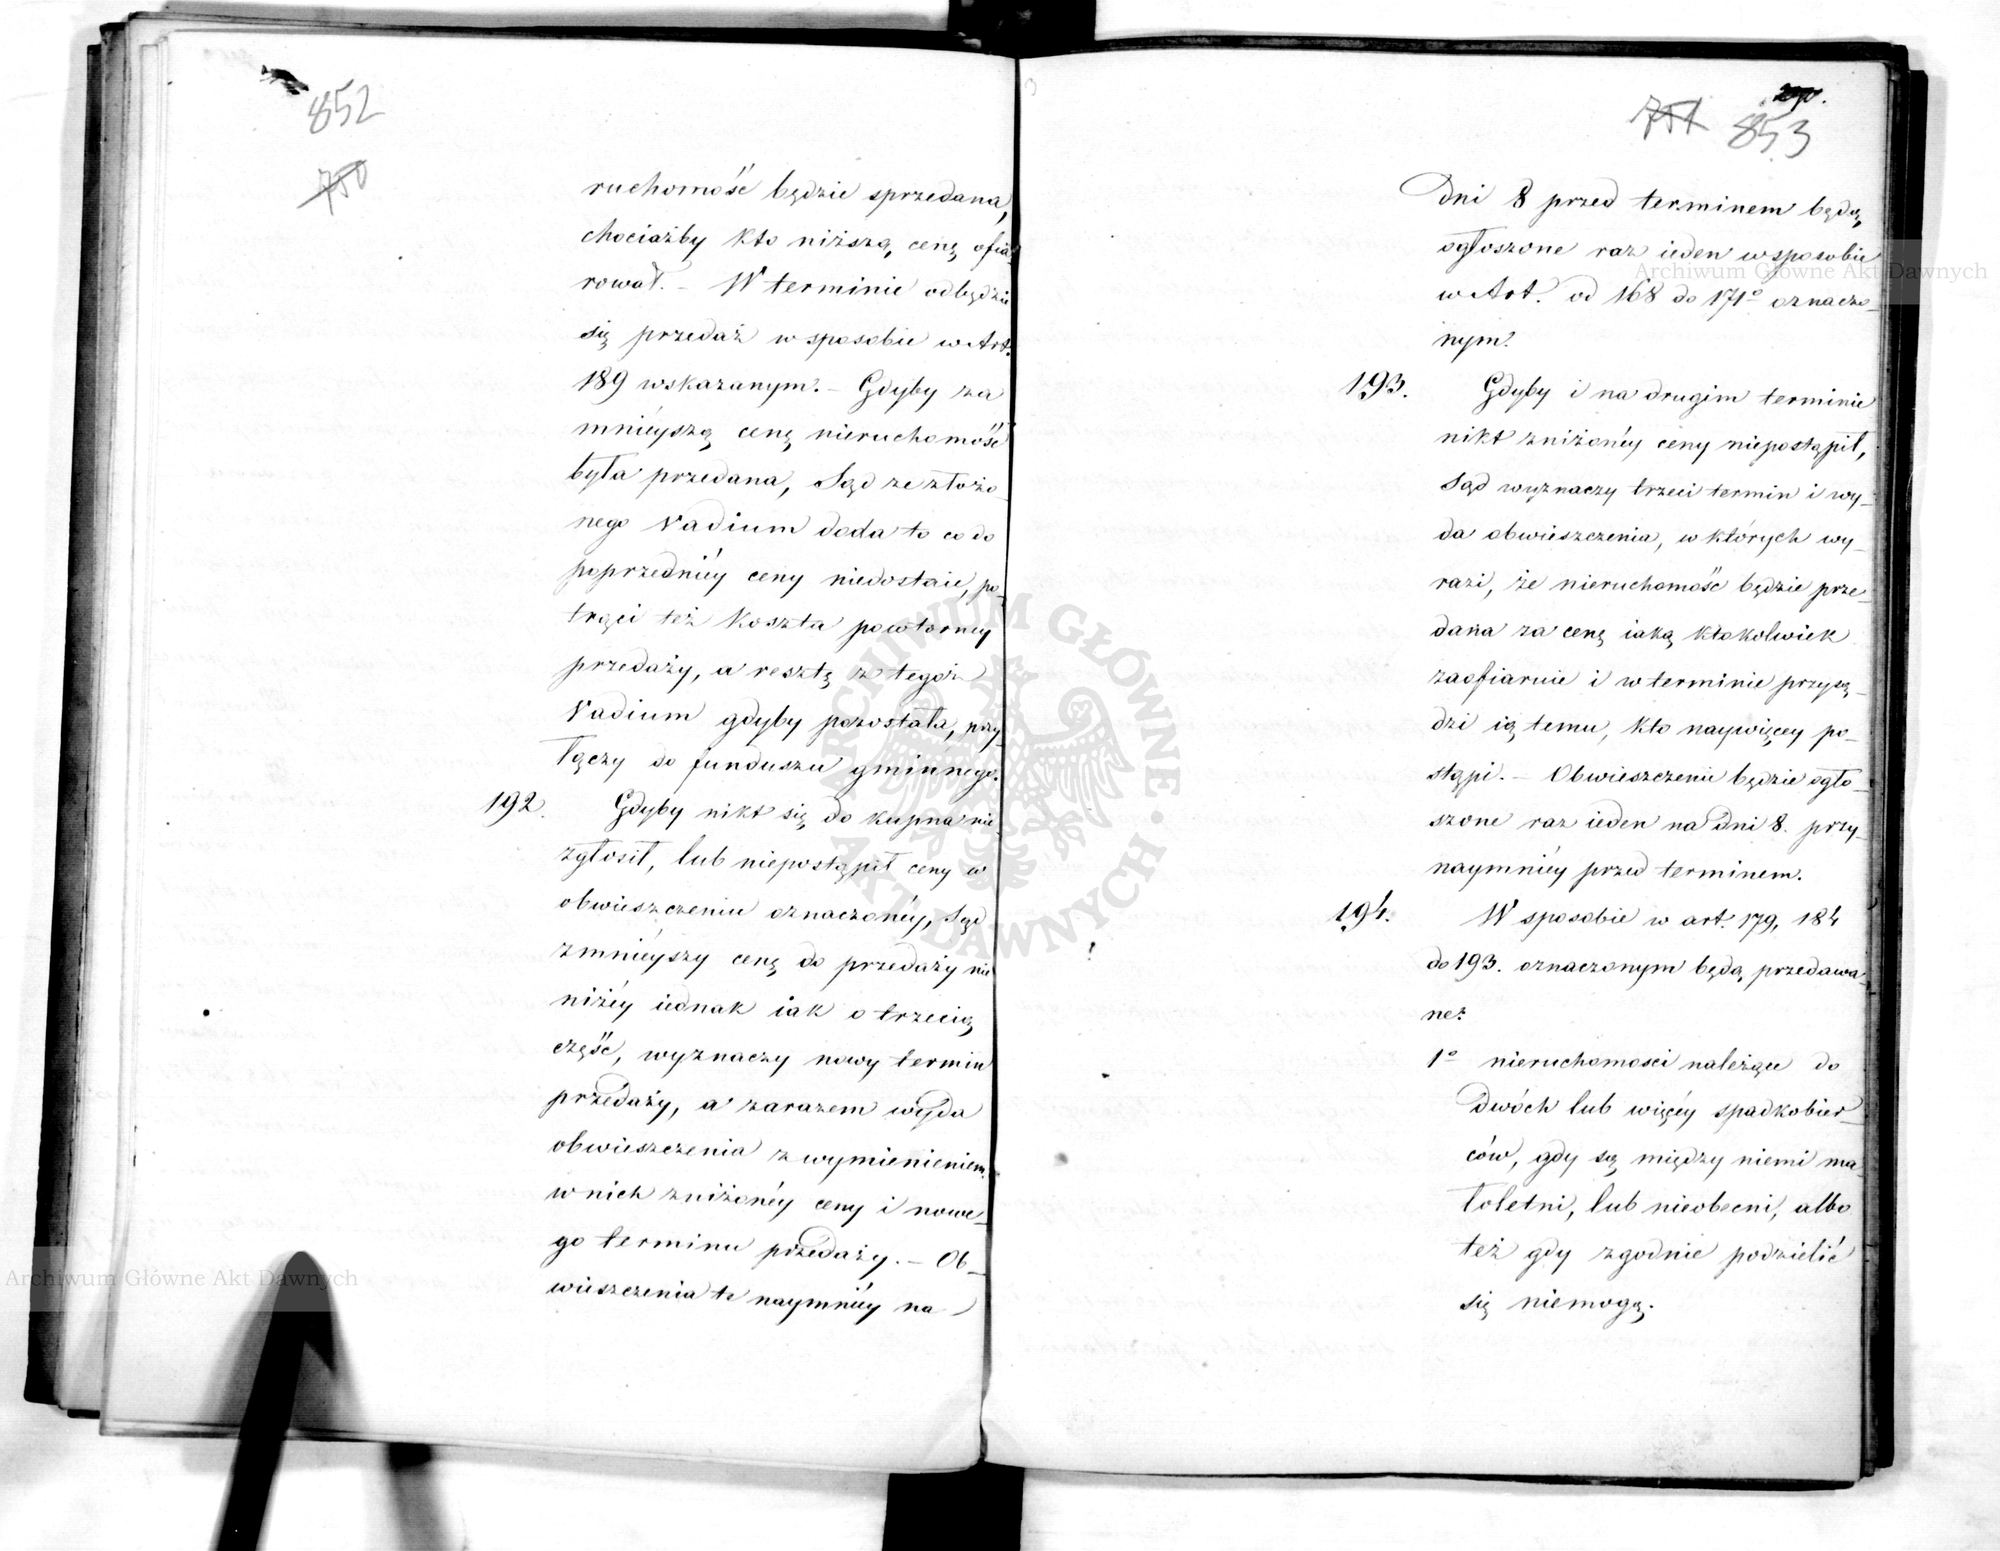 852
750
ruchomość będzie sprzedana,
chociażby kto niższą cenę ofia-
rował. – W terminie odbędzie
się przedaż w sposobie w Art.
189 wskazanym. – Gdyby za
mnieyszą cenę nieruchomość
była przedana, Sąd ze złożo-
nego Vadium doda to co do
poprzedniéy ceny niedostaie, po-
trąci też koszta powtorney
przedaży, a resztę z tegoż
Vadium gdyby pozostała, przy-
łączy do funduszu gminnego.
192. Gdyby nikt się do kupna nie
zgłosił, lub niepostąpił ceny w
obwieszczeniu oznaczonéy, Sąd
zmnieyszy cenę do przedaży nie
niżéy iednak iak o trzecią
część, wyznaczy nowy termin
przedaży, a zarazem wyda
obwieszczenia z wymienieniem
w nich zniżonéy ceny i nowe-
go terminu przedaży. – Ob-
wieszczenia te naymniéy na
751 853
Dni 8 przed terminem będą
ogłoszone raz ieden w sposobie
w Art. od 168 do 171º oznaczo-
nym.
193. Gdyby i na drugim terminie
nikt zniżonéy ceny niepostąpił,
Sąd wyznaczy trzeci termin i wy-
da obwieszczenia, w których wy-
razi, że nieruchomość będzie prze-
dana za cenę iaką ktokolwiek
zaofiaruie i w terminie przysą-
dzi ią temu, kto naywięcey po-
stąpi. – Obwieszczenie będzie ogło-
szone raz ieden na Dni 8. przy-
naymniéy przed terminem.
194. W sposobie w art. 179, 184
do 193. oznaczonym będą przedawa-
ne:
1º nieruchomości należące do
dwóch lub więcéy spadkobier-
ców, gdy są między niemi ma-
łoletni, lub nieobecni, albo
też gdy zgodnie podzielić
się niemogą.
Archiwum Główne Akt Dawnych
Archiwum Główne Akt Dawnych
ARCHIWUM GŁÓWNE · AKT DAWNYCH ·